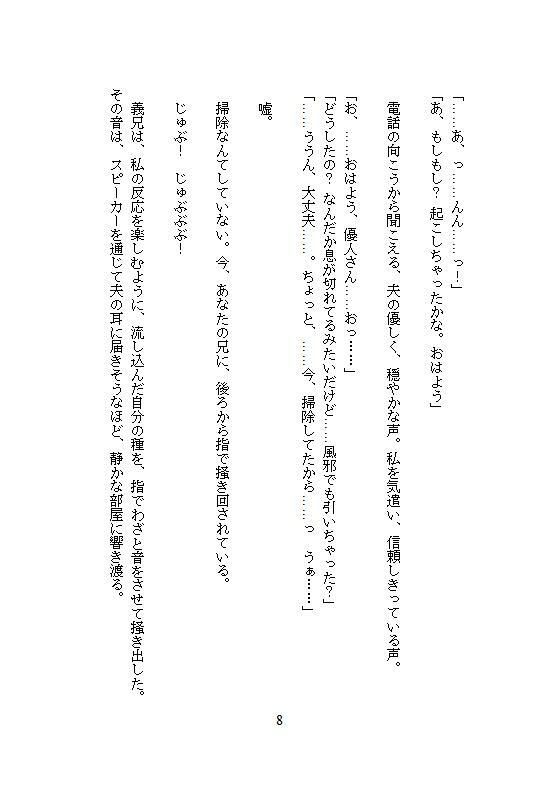 「……あ、っ……んん……っ！」
「あ、もしもし？　起こしちゃったかな。おはよう」
電話の向こうから聞こえる、夫の優しく、穏やかな声。私を気遣い、信頼しきっている声。
「お、……おはよう、優人さん……おっ……」
「どうしたの？　なんだか息が切れてるみたいだけど……風邪でも引いちゃった？」
「……ううん、大丈夫……。ちょっと、……今、掃除してたから……っ　うぁ……」
嘘。
掃除なんてしていない。今、あなたの兄に、後ろから指で掻き回されている。
じゅぶ！　じゅぶぶぶ！
義兄は、私の反応を楽しむように、流し込んだ自分の種を、指でわざと音をさせて掻き出した。
その音は、スピーカーを通じて夫の耳に届きそうなほど、静かな部屋に響き渡る。
8